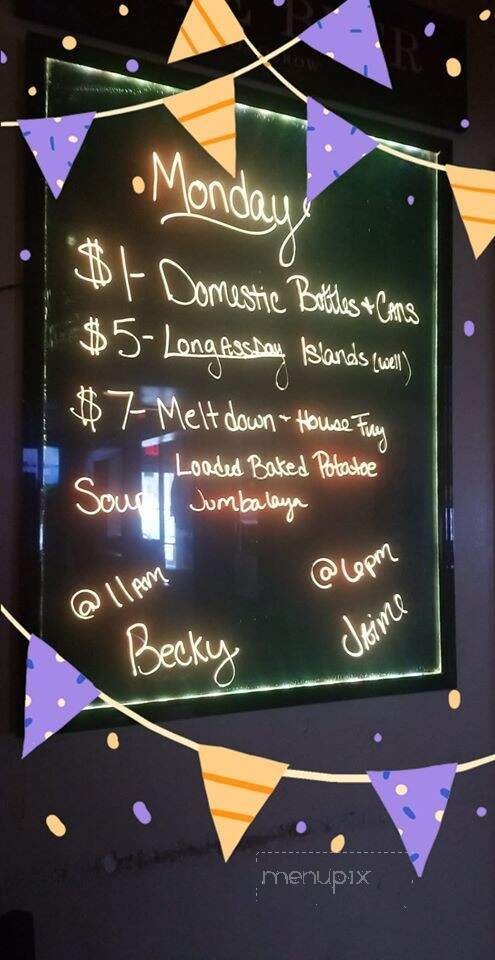 BEER
ROW
Monday
$1- Domestic Bottles + Cans
$5- Long Assday Islands (well)
$7- Meltdown - House Fry
Loaded Baked Potatoe
Soup Jumbalaya
@ 11am @ 6pm
Becky Jaime
menupix